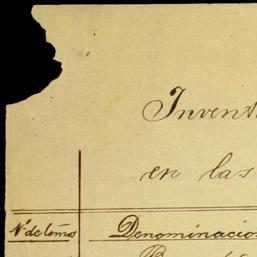 Invent
en las
Nº de tomos Denominacio